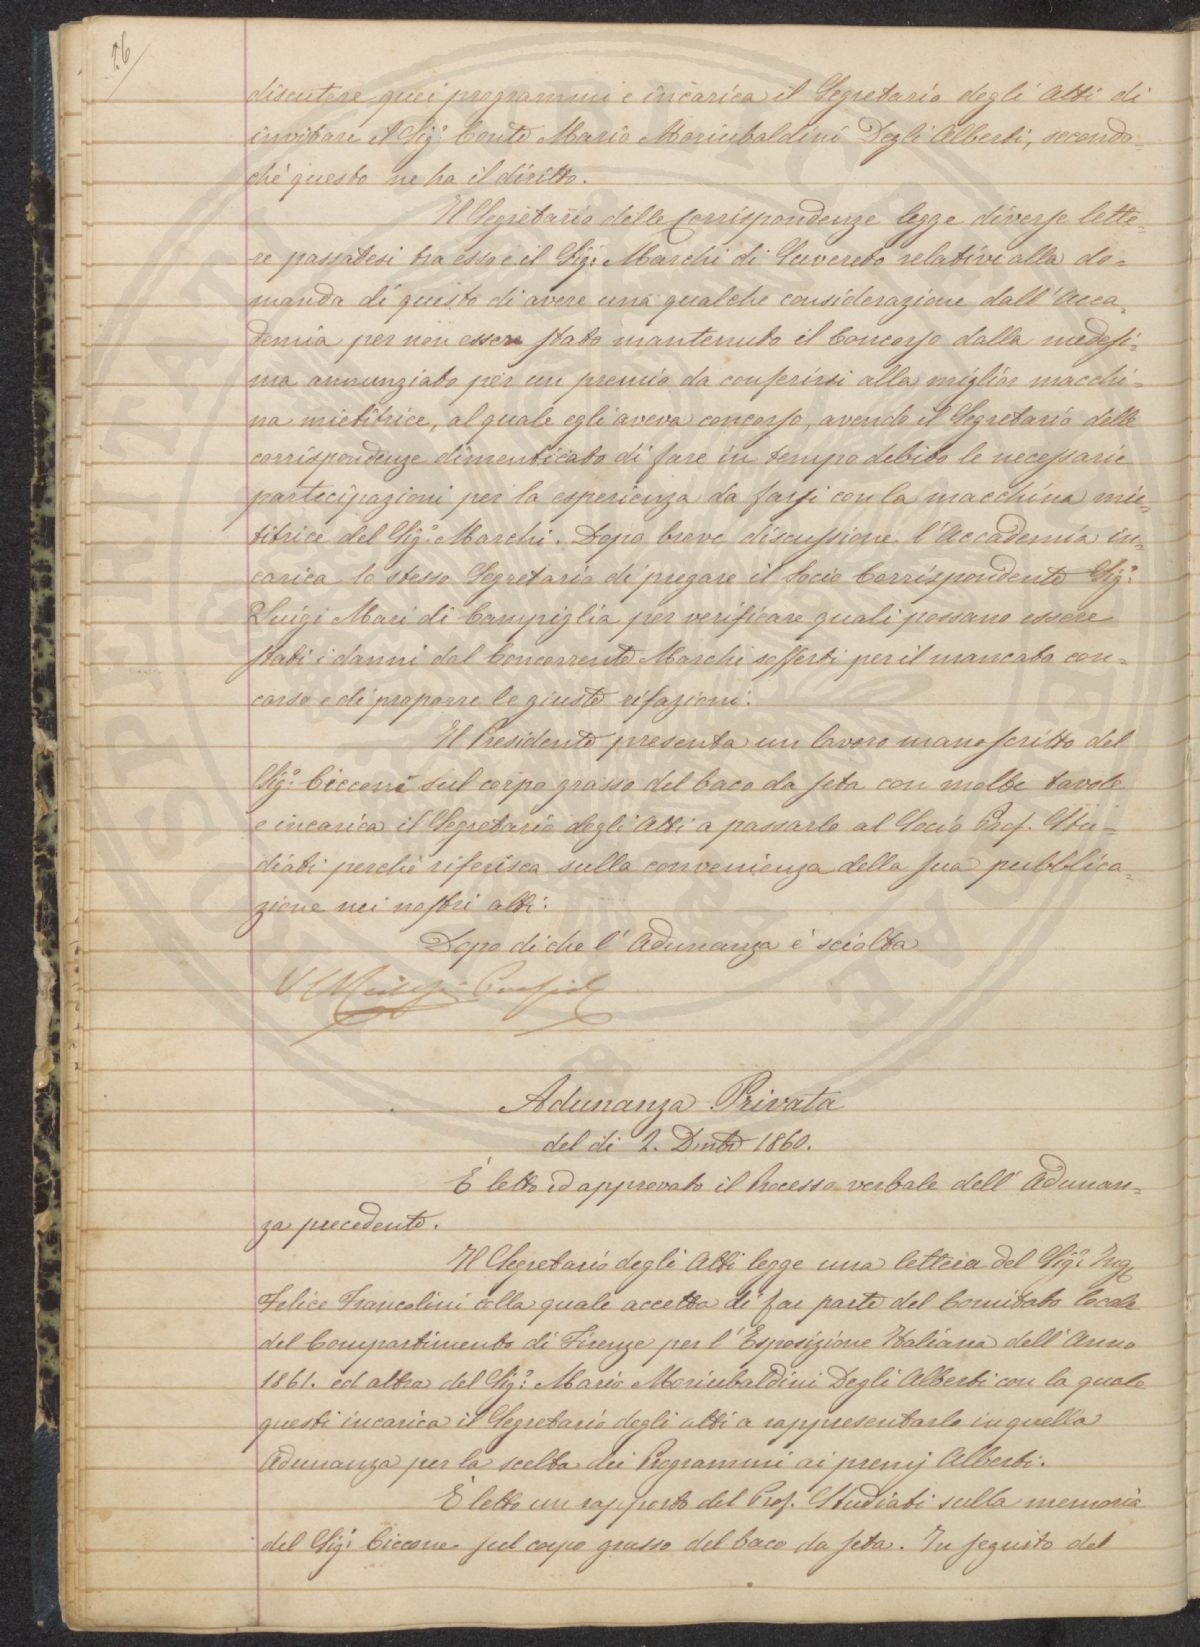 16
discutere quei programmi e incarica il Segretario degli Atti di
invitare il Sig.r Conte Mario Moriubaldini Degli Alberti, secondo-
chè questo ne ha il diritto.
Il Segretario delle Corrispondenze legge diverse lette-
re passatesi tra esso e il Sig.r Marchi di Suvereto relativi alla do-
manda di questo di avere una qualche considerazione dall'Acca-
demia per non essere stato mantenuto il Concorso dalla medesi-
ma annunziato per un premio da conferirsi alla miglior macchi-
na mietitrice, al quale egli aveva concorso, avendo il Segretario delle
corrispondenze dimenticato di fare in tempo debito le necessarie
partecipazioni per la esperienza da farsi con la macchina mie-
titrice del Sig.r Marchi. Dopo breve discussione l'Accademia in-
carica lo stesso Segretario di pregare il Socio Corrispondente Sig.r
Luigi Mari di Campiglia per verificare quali possano essere
stati i danni dal Concorrente Marchi sofferti per il mancato con-
corso e di proporre le giuste rifazioni.
Il Presidente presenta un lavoro manoscritto del
Sig.r Ciccone sul corpo grasso del baco da seta con molte tavole
e incarica il Segretario degli Atti a passarlo al Socio Prof. Stu-
diati perchè riferisca sulla convenienza della sua pubblica-
zione nei nostri atti.
Dopo di che l'Adunanza è sciolta
Adunanza Privata
del dì 2. Dmbe 1860.
È letto ed approvato il Processo verbale dell'Adunan-
za precedente.
Il Segretario degli Atti legge una lettera del Sig.r Ing.
Felice Francolini colla quale accetta di far parte del Comitato locale
del Compartimento di Firenze per l'Esposizione Italiana dell'Anno
1861. ed altra del Sig.r Mario Moriubaldini Degli Alberti con la quale
questi incarica il Segretario degli atti a rappresentarlo in quella
Adunanza per la scelta dei Programmi ai premj Alberti.
È letto un rapporto del Prof. Studiati sulla memoria
del Sig.r Ciccone sul corpo grasso del baco da seta. In seguito del